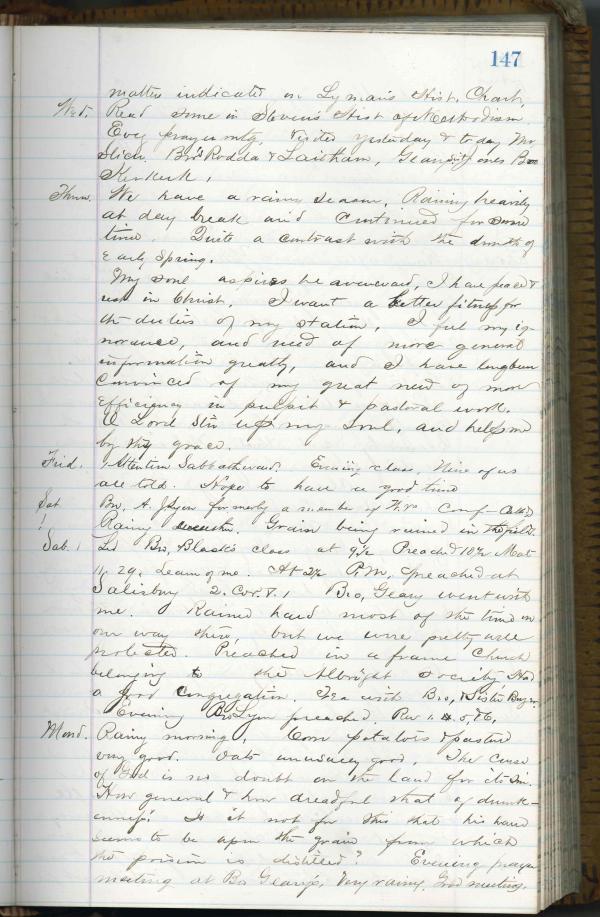 147
matters indicated in Lyman's Hist. Chart.
Wed. Read some in Stevens Hist of Methodism.
Eveg prayer mtg. Visited yesterday & to day Mr
Bros Rodda &
Thurs. We have a rainy season. Raining heavily
at day break and continued for some
time. Quite a contrast with the drouth of
Early Spring.
My soul aspires heavenward, I have peace &
rest in Christ. I want a better fitness for
the duties of my station. I feel my ig-
norance, and need of more general
information greatly, and I have long been
convinced of my great need of more
Efficiency in pulpit & pastoral work.
O Lord Stir up my Soul, and help me
by thy grace.
Frid. Attention Sabbathward. Evening class. Nine of us
all told. Hope to have a good time
Sat Bro. A. formerly a member of Conf called
! Rainy weather. Grain being ruined in the field.
Sab. 1 Led Bro. Black's class at 9½ Preached 10½ Mat
11. 29. Learn of me. At 2½ P.M. preached at
Salisbury 2. Cor. 8. 1 Bro. Geary went with
me. Rained hard most of the time on
our way there, but we were pretty well
protected. Preached in a frame Church
belonging to the Albright Society. Had
a good Congregation. Tea with Bro. & Sister
Evening Bro Lyon preached. Rev 1. 5, & 6.
Mond. Rainy morning. Corn potatoes & pasture
very good. Oats unusually good. The Curse
of God is no doubt on the land for its Sin.
How general & how dreadful that of drunk-
enness! Is it not for this that his hand
seems to be upon the grain from which
the poison is distilled? Evening prayer
meeting at Bro Geary's. Very rainy. Good meeting.